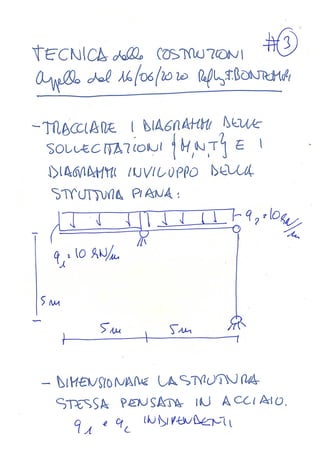 #3
TECNICA delle COSTRUZIONI
Appello del 16/06/2020 Prof. Ing. F. BONTEMPI
- TRACCIARE I DIAGRAMMI DELLE
SOLLECITAZIONI {M,N,T} E I
DIAGRAMMI INVILUPPO DELLA
STRUTTURA PIANA:
q2=10 kN/m
q1=10 kN/m
5m
5m 5m
- DIMENSIONARE LA STRUTTURA
STESSA PENSATA IN ACCIAIO.
q1 e q2 INDIPENDENTI